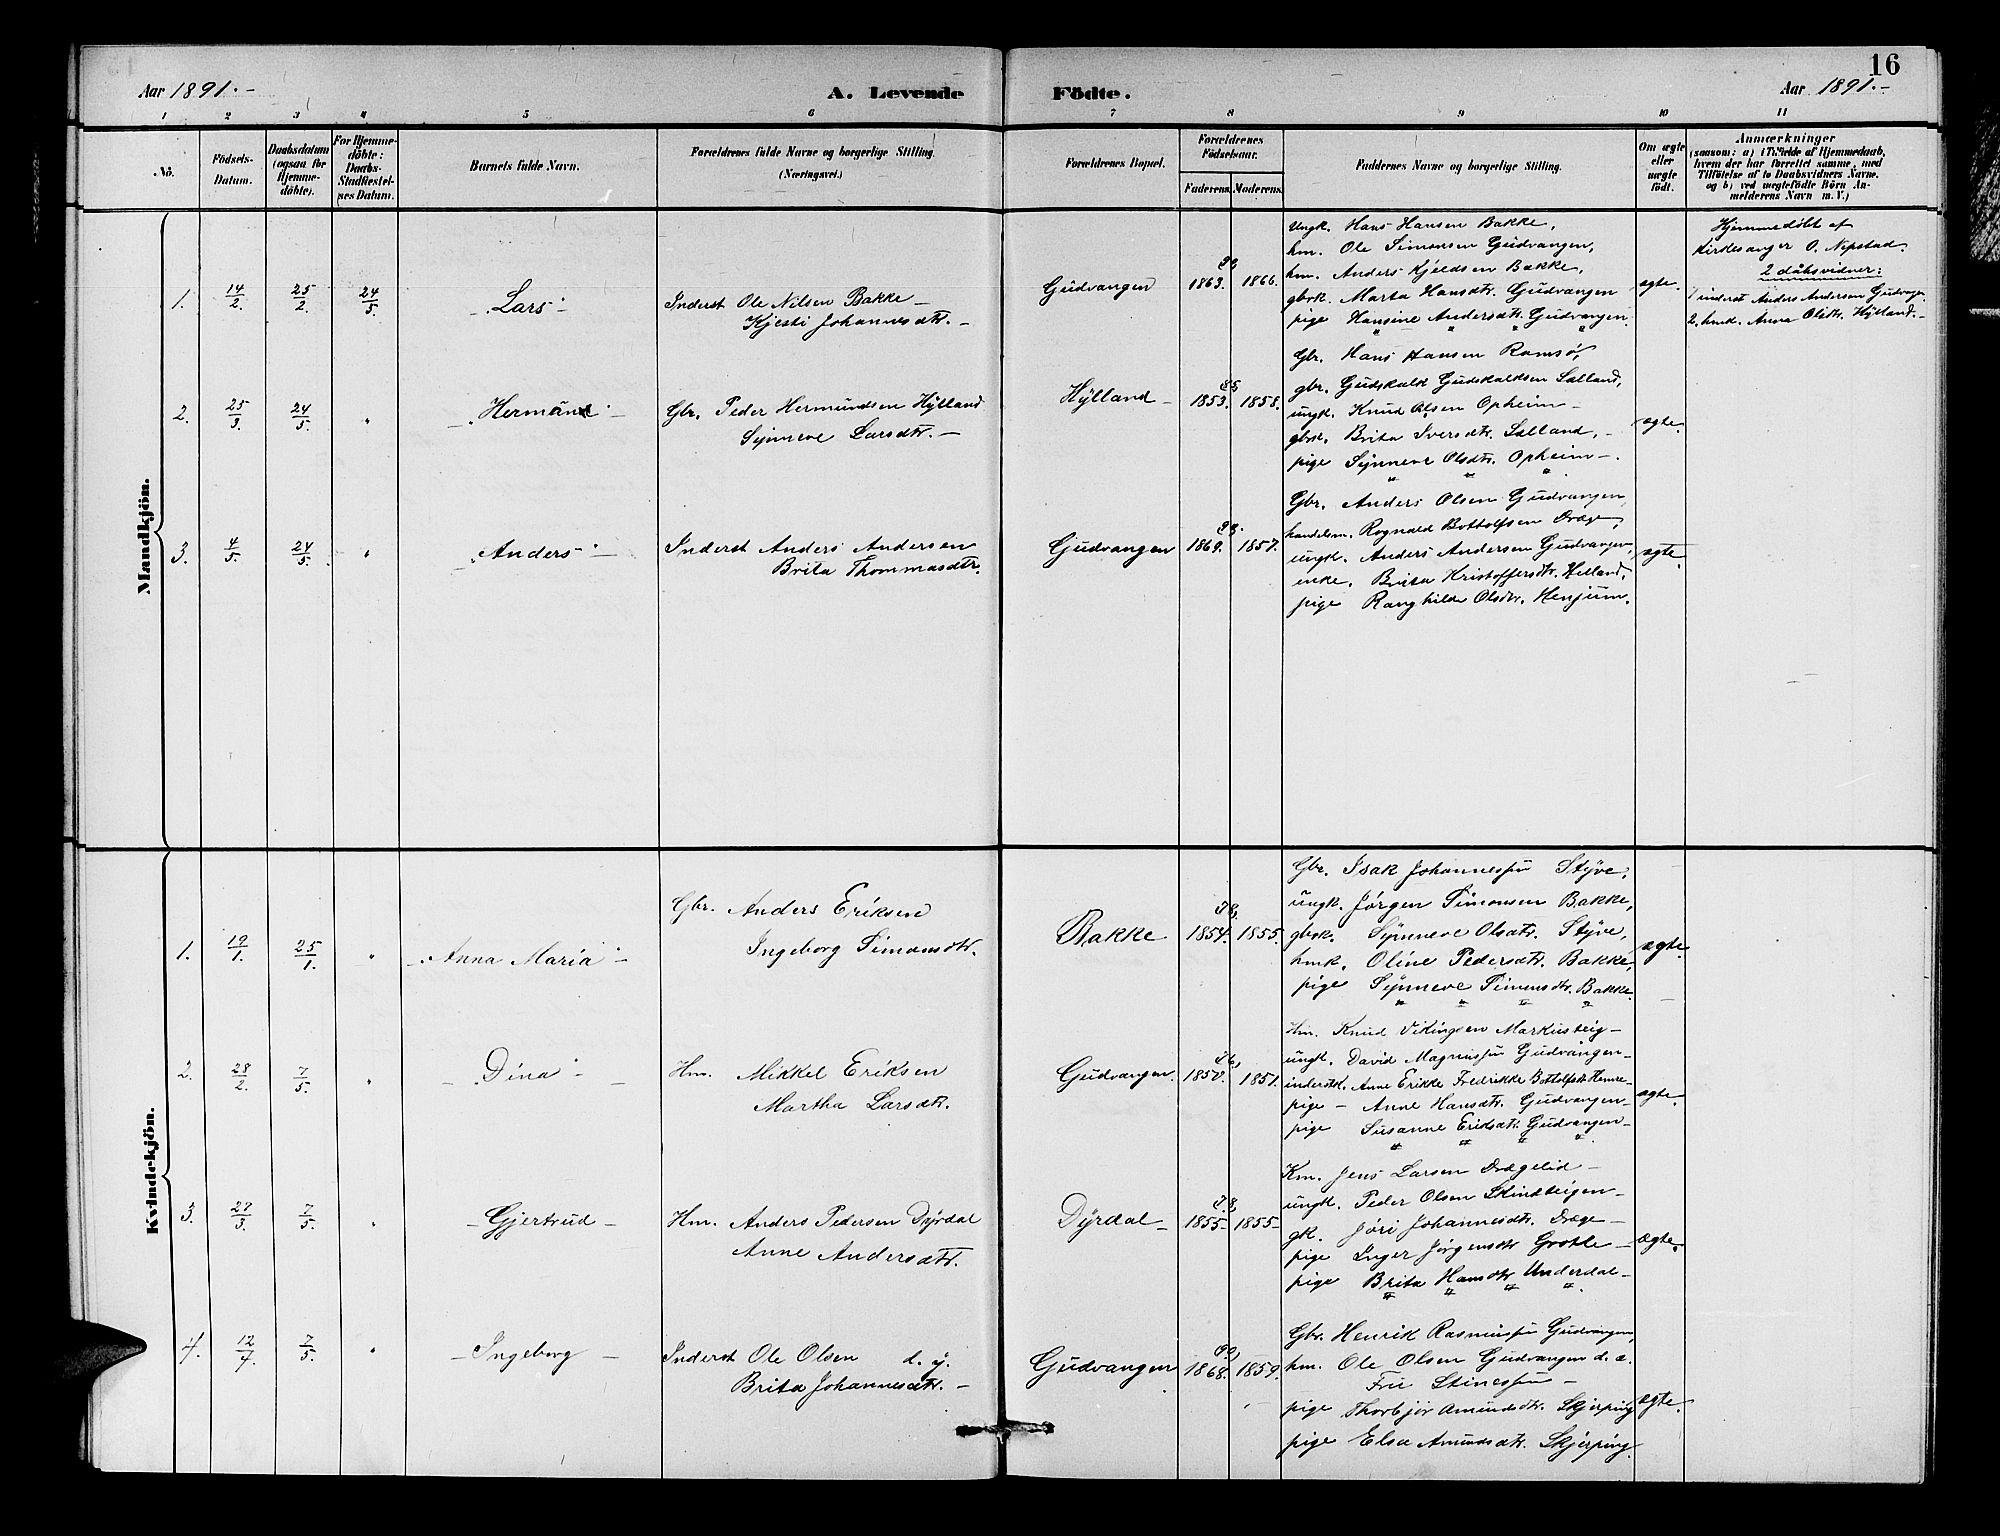 16
Aar 1891.-
A. Levende Födte.
Aar 1891.-
1 2 3 4 5 6 7 8 9 10 11
No.
Födsels-
Datum.
Daabsdatum
(ogsaa for
Hjemme-
döbte).
For Hjemme-
döbte:
Daabs-
Stadfæstel-
ses Datum.
Barnets fulde Navn.
Forældrenes fulde Navne og borgerlige Stilling.
(Næringsvei.)
Forældrenes Bopæl.
Forældrenes
Födselsaar.
Faderens. Moderens.
Faddernes Navne og borgerlige Stilling.
Om ægte
eller
uægte
födt.
Anmærkninger
(saasom: a) i Tilfælde af Hjemmedaab,
hvem der har forrettet samme, med
Tilföielse af to Daabsvidners Navne.
og b) ved uægtefödte Börn An-
melderens Navn m. V.)
Mandkjön.
1. 14/2 25/2 24/5 Lars
Inderst Ole Nilsen Bakke -
Kjesti Johannesdtr. -
Gudvangen
1863. 1866.
Ungk. Hans Hansen Bakke,
hm. Ole Simonsen Gudvangen,
hm. Anders Kjeldsen Bakke,
gbrk. Marta Hansdtr. Gudvangen
pige Hansine Andersdtr. Gudvangen.
ægte.
Hjemmedøbt af
kirkesanger O. Nepstad.
2 dåbsvidner:
1 inderst Anders Andersen Gudvangen
2. hmk. Anna Olsdtr. Hylland.-
2. 25/3 24/5 " Hermund
Gbr. Peder Hermundsen Hylland
Synneve Larsdtr. -
Hylland -
1853. 1858.
Gbr. Hans Hansen Ramsø,
gbr. Gudskalk Gudskalksen Salland,
ungk. Knud Olsen Opheim -
gbrk. Brita Iversdtr. Salland, -
pige Synneve Olsdtr. Opheim -.
ægte.
3. 4/5 24/5 " Anders -
Inderst Anders Andersen
Brita Thommasdtr.
Gudvangen
1869. 1857.
Gbr. Anders Olsen Gudvangen,
handelsm. Rognald Bottolfsen Dræge,
ungk. Anders Andersen Gudvangen,
enke. Brita Kristoffersdtr. Helland,
pige Ranghilde Olsdtr. Henjum.
ægte.
Kvindekjön.
1. 19/1 25/1 " Anna Maria -
Gbr. Anders Eriksen
Ingeborg Simonsdtr.
Bakke
1854. 1855.
Gbr. Isak Johannessen Styve,
ungk. Jørgen Simonsen Bakke,
gbrk. Synneve Olsdtr. Styve,
hmk. Oline Pedersdtr. Bakke,
pige Synneve Simonsdtr. Bakke.
ægte.
2. 28/2 7/5 " Dina -
Hm. Mikkel Eriksen
Martha Larsdtr.
Gudvangen.
1850. 1851.
Hm. Knud Vikingsen Markusteig -
ungk. David Magnussen Gudvangen -
inderstk. Anne Erikke Fredrikke Bottolfsdtr.
pige - Anne Hansdtr. Gudvangen -
pige Susanne Eriksdtr. Gudvangen -
ægte.
3. 27/3 7/5 " Gjertrud -
Hm. Anders Pedersen Dyrdal
Anne Andersdtr.
Dyrdal -
1855. 1855.
Km. Jens Larsen Drægelid -
ungk. Peder Olsen Skindteigen -
gk. Jøri Johannesdtr. Dræge -
pige Inger Jørgensdtr Grotle -
pige Brita Hansdtr Underdal -
ægte.
4. 12/7 7/5 " Ingeborg -
Inderst Ole Olsen d. y.
Brita Johannesdtr. -
Gudvangen
1868. 1859.
Gbr. Henrik Rasmussen Gudvangen,
hm. Ole Olsen Gudvangen d. æ.
pige Thorbjør Amundsdtr. Skjerping
pige Elsa Amundsdtr. Skjerping.
ægte.